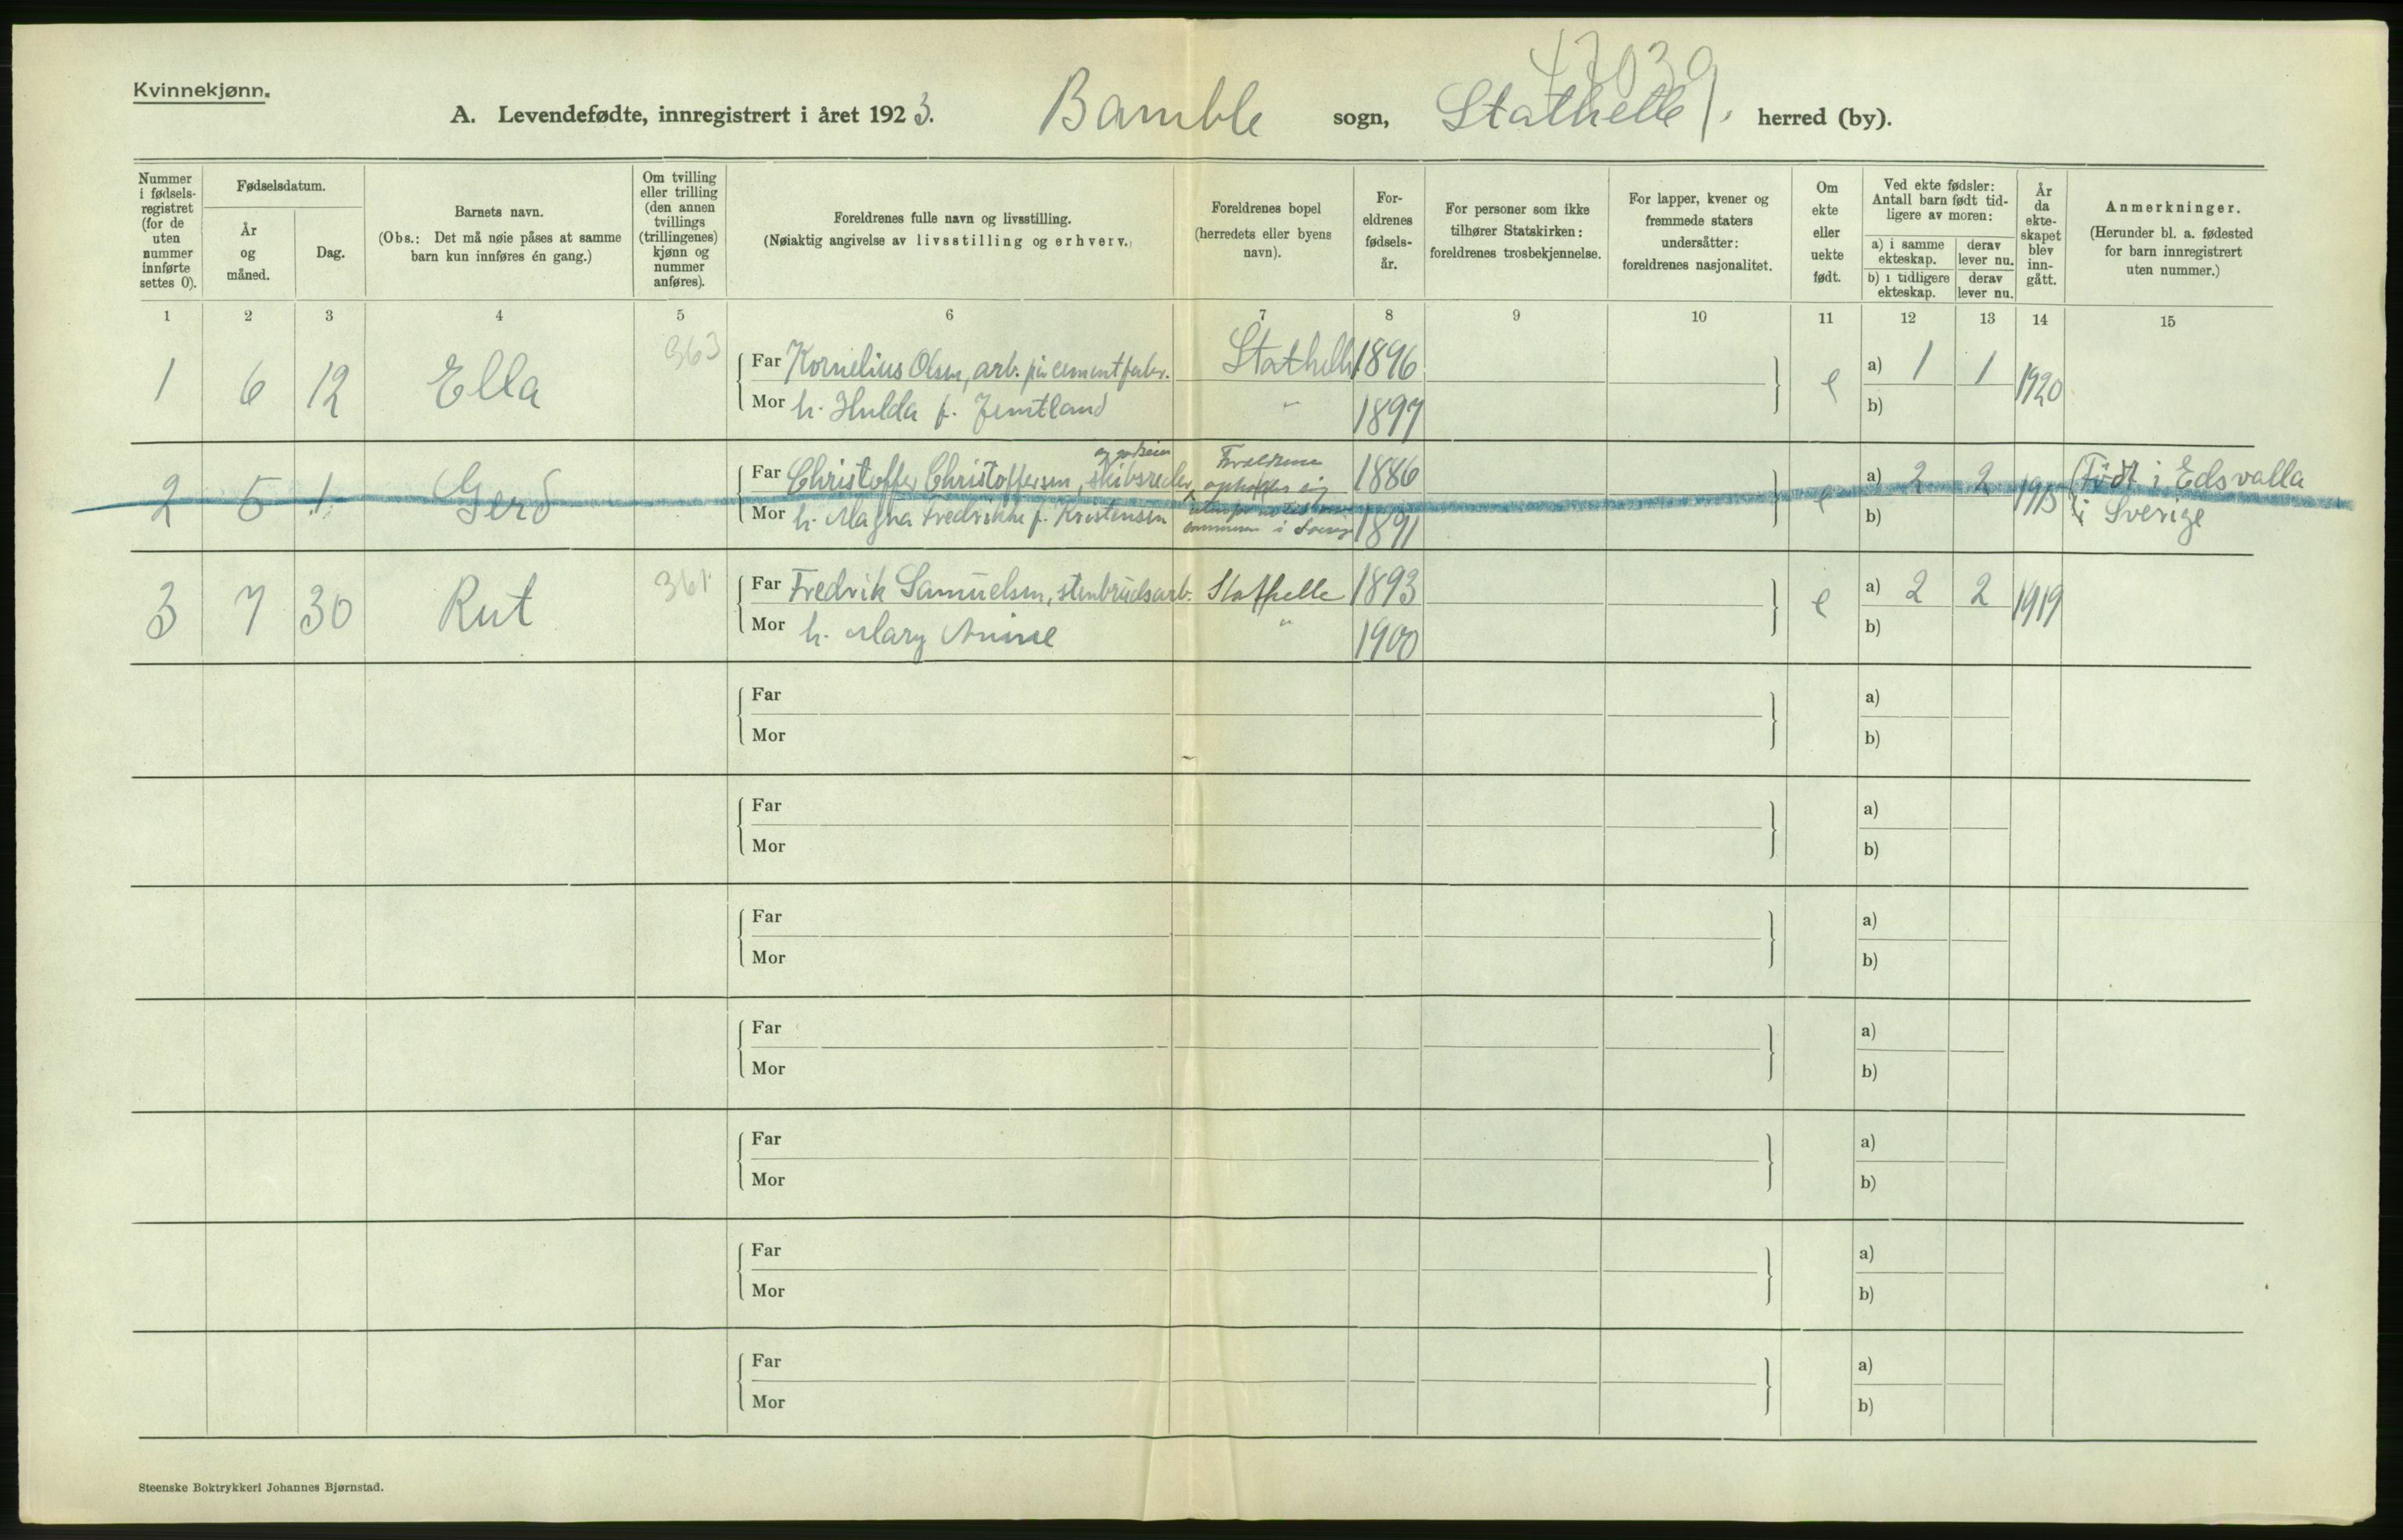 47030
Kvinnekjønn.
A. Levendefødte, innregistrert i året 1923. Bamble sogn, Stathelle herred (by).
Nummer i fødsels-registret (for de uten nummer innførte settes 0).
Fødselsdatum.
År og måned.
Dag.
Barnets navn.
(Obs.: Det må nøie påses at samme barn kun innføres én gang.)
Om tvilling eller trilling (den annen tvillings (trillingenes) kjønn og nummer anføres).
Foreldrenes fulle navn og livsstilling.
(Nøiaktig angivelse av livsstilling og erhverv.)
Foreldrenes bopel (herredets eller byens navn).
For-eldrenes fødsels-år.
For personer som ikke tilhører Statskirken: foreldrenes trosbekjennelse.
For lapper, kvener og fremmede staters undersåtter: foreldrenes nasjonalitet.
Om ekte eller uekte født.
Ved ekte fødsler: Antall barn født tid-ligere av moren:
a) i samme ekteskap.
derav lever nu.
b) i tidligere ekteskap.
derav lever nu.
År da ekte-skapet blev inn-gått.
Anmerkninger.
(Herunder bl. a. fødested for barn innregistrert uten nummer.)
1 2 3 4 5 6 7 8 9 10 11 12 13 14 15
1 6 12 Ella 363 Far Kornelius Olsen, arb. på cementfabr. Stathelle 1896 e a) 1 1 1920
Mor h. Hulda f. Jemtland " 1897 b)
2 5 1 Gerd Far Christoffer Christoffersen, skibsreder Foreldrene opholder sig 1886 e a) 2 2 1915 (Født i Edsvalla
Mor h. Magna Fredrikke f. Kristensen i 1891 b) i Sverige
3 7 30 Rut 361 Far Fredrik Samuelsen, stenbrudsarb. Stathelle 1893 e a) 2 2 1919
Mor h. Mary " 1900 b)
Far a)
Mor b)
Far a)
Mor b)
Far a)
Mor b)
Far a)
Mor b)
Far a)
Mor b)
Far a)
Mor b)
Far a)
Mor b)
Steenske Boktrykkeri Johannes Bjørnstad.